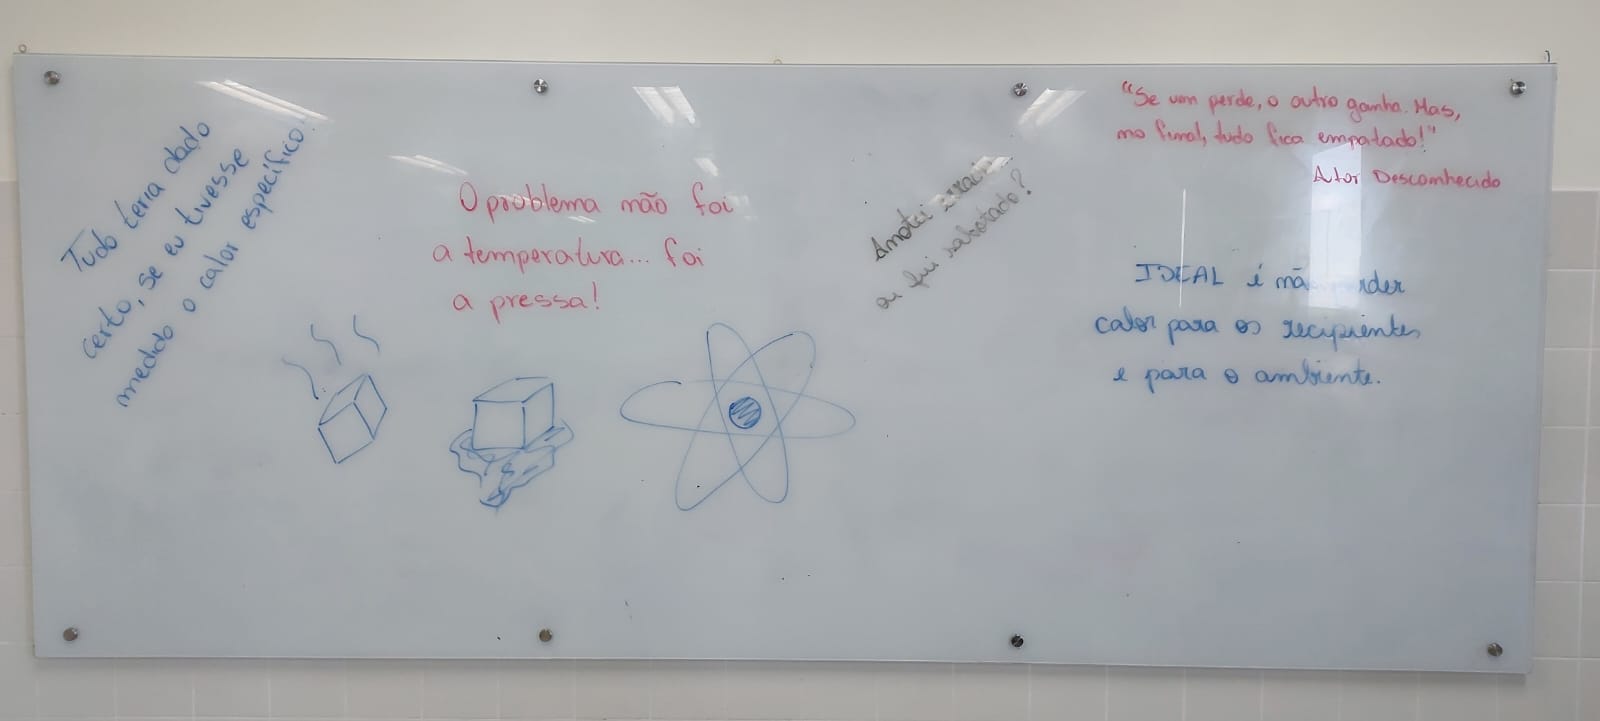 Tudo teria dado
certo, se eu tivesse
medido o calor específico!
O problema não foi
a temperatura... foi
a pressa!
Anotei
ou fui sabotado?
"Se um perde, o outro ganha. Mas,
no final, tudo fica empatado!"
Ator Desconhecido
IDEAL é
calor para os recipientes
e para o ambiente.